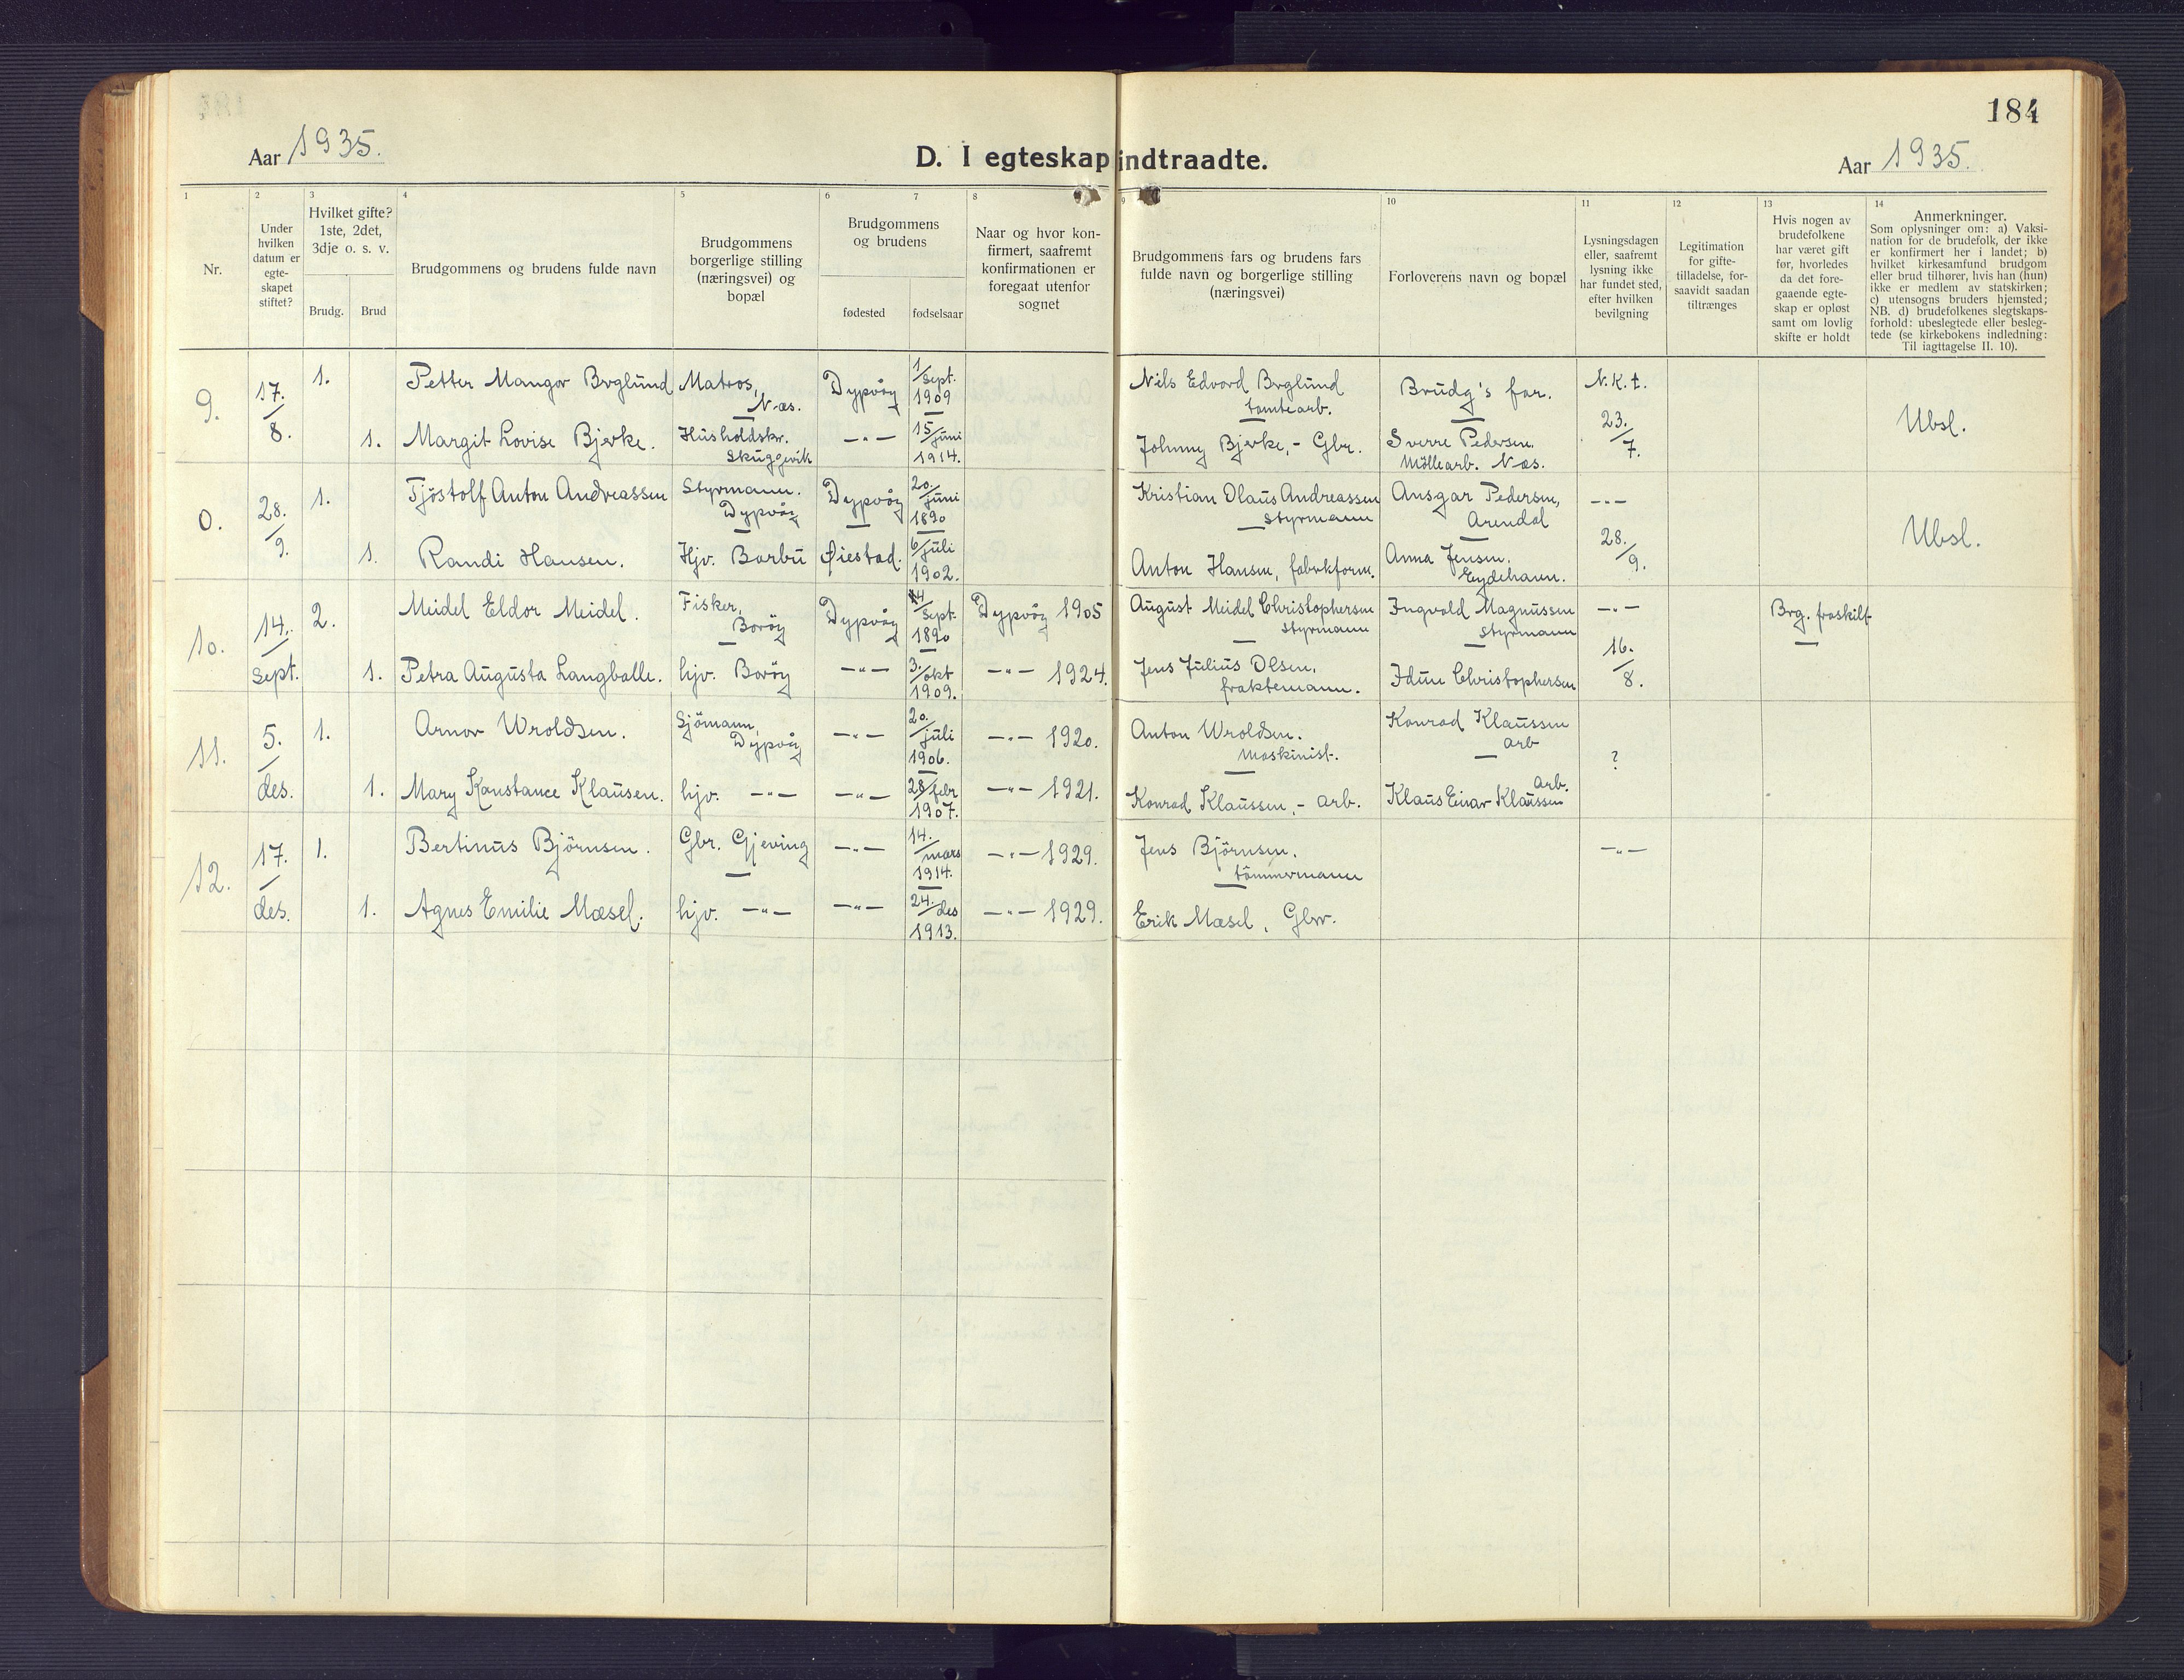 184
Aar 1935.
D. I egteskap indtraadte.
Aar 1935.
1 2 3 4 5 6 7 8 9 10 11 12 13 14
Nr.
Under hvilken datum er egte-skapet stiftet?
Hvilket gifte? 1ste, 2det, 3dje o. s. v.
Brudg. Brud
Brudgommens og brudens fulde navn
Brudgommens borgerlige stilling (næringsvei) og bopæl
Brudgommens og brudens
fødested fødselsaar
Naar og hvor kon-firmert, saafremt konfirmationen er foregaat utenfor sognet
Brudgommens fars og brudens fars fulde navn og borgerlige stilling (næringsvei)
Forloverens navn og bopæl
Lysningsdagen eller, saafremt lysning ikke har fundet sted, efter hvilken bevilgning
Legitimation for gifte-tilladelse, for-saavidt saadan tiltrænges
Hvis nogen av brudefolkene har været gift før, hvorledes da det fore-gaaende egte-skap er opløst samt om lovlig skifte er holdt
Anmerkninger.
Som oplysninger om: a) Vaksi-nation for de brudefolk, der ikke er konfirmert her i landet; b) hvilket kirkesamfund brudgom eller brud tilhører, hvis han (hun) ikke er medlem av statskirken; c) utensogns bruders hjemsted; NB. d) brudefolkenes slegtskaps-forhold: ubeslegtede eller besleg-tede (se kirkebokens indledning: Til iagttagelse II. 10).
9. 17./8. 1. Petter Mangor Berglund Matros, Næs. Dypvåg 1/Sept. 1909 Nils Edvard Berglund tomtearb. Brudg's far. N.K.t. Ubsl.
1. Margit Lovise Bjerke. Husholdskr. Skuggevik —"— 15/juni 1914. Johnny Bjerke, - Gbr. Sverre Pedersen. Möllearb. Næs. 23./7.
0. 28./9. 1. Tjöstolf Anton Andreassen Styrmann. Dypvåg Dypvåg 20./juni 1890 Kristian Olaus Andreassen styrmann Ansgar Pedersen, Arendal —"— Ubsl.
1. Randi Hansen. Hjv. Barbu Øiestad. 6/juli 1902. Anton Hansen, fabrkform. Anna Jensen. Eydehavn. 28./9.
10. 14./Sept. 2. Meidel Eldor Meidel. Fisker, Borøy Dypvåg 14/Sept. 1890 Dypvåg 1905 August Meidel Christophersen styrmann Ingvald Magnussen styrmann —"— Brg. fraskilt
1. Petra Augusta Langballe. hjv. Borøy —"— 3./okt 1909. —"— 1924. Jens Julius Olsen, fraktemann. Idun Christophersen 16./8.
11. 5./des. 1. Arnor Wroldsen. Sjömann, Dypvåg —"— 20./juli 1906. —"— 1920. Anton Wroldsen. maskinist. Konrad Klaussen arb ?
1. Mary Konstance Klausen. hjv. —"— —"— 28/febr 1907. —"— 1921. Konrad Klaussen, - arb. Klaus Einar Klaussen arb.
12. 17./des. 1. Bertinus Björnsen. Gbr. Gjeving —"— 14./mars 1914. —"— 1929. Jens Björnsen. tömmermann —"—
1. Agnes Emilie Mæsel. hjv. —"— —"— 24./des 1913. —"— 1929. Erik Mæsel, Gbr.